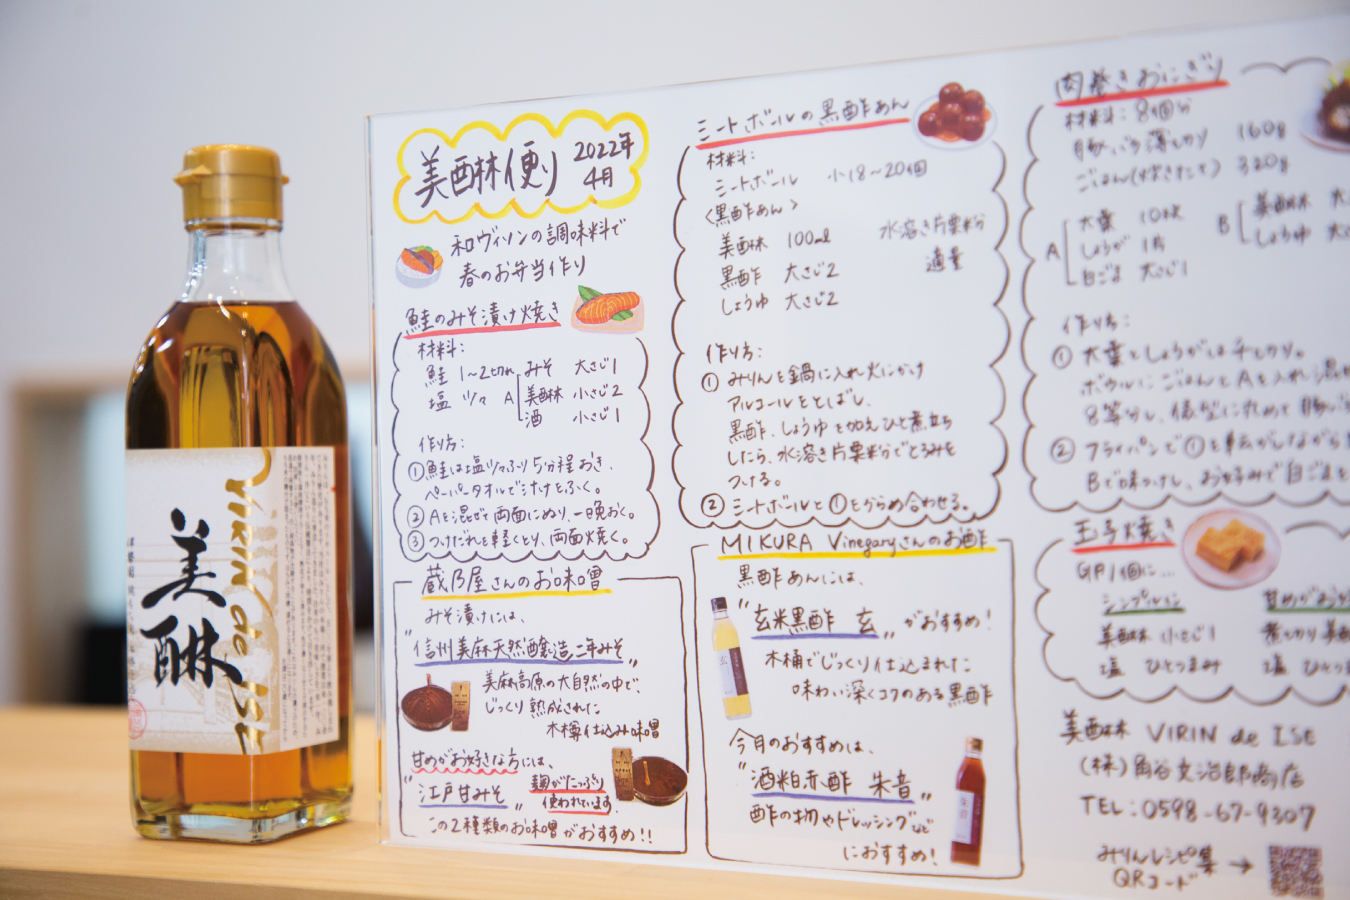 美醂
VIRIN de ISE
美醂便り
2022年
4月
和ヴィソンの調味料で
春のお弁当作り
鮭のみそ漬け焼き
材料:
鮭 1〜2切れ
塩 少々
A
みそ 大さじ1
美醂 小さじ2
酒 小さじ1
作り方:
①鮭は塩少々ふり5分程おき、
ペーパータオルで汁けをふく。
②Aを混ぜて両面にぬり、一晩おく。
③つけだれを軽くとり、両面焼く。
蔵乃屋さんのお味噌
みそ漬けには、
"信州美麻天然醸造二年みそ"
美麻高原の大自然の中で、
じっくり熟成された
木樽仕込み味噌
甘めがお好きな方には、
"江戸甘みそ"
麹がたっぷり
使われています。
この2種類のお味噌がおすすめ!!
ミートボールの黒酢あん
材料:
ミートボール 小18〜20個
<黒酢あん>
美醂 100ml
黒酢 大さじ2
しょうゆ 大さじ2
水溶き片栗粉
適量
作り方:
① みりんを鍋に入れ火にかけ
アルコールをとばし、
黒酢、しょうゆを加えひと煮立ち
したら、水溶き片栗粉でとろみを
つける。
② ミートボールと①をからめ合わせる。
MIKURA Vinegaryさんのお酢
黒酢あんには、
"玄米黒酢 玄"がおすすめ!
木桶でじっくり仕込まれた
味わい深くコクのある黒酢
今月のおすすめは、
"酒粕赤酢 朱音"
酢の物やドレッシングなど
におすすめ!
肉巻きおにぎり
材料:8個分
豚バラ薄切り 160g
ごはん(炊きたて) 320g
A
大葉 10枚
しょうが 1片
白ごま 大さじ1
B
美醂 大
しょうゆ 大
作り方:
① 大葉としょうがは千切り。
ボウルにごはんとAを入れ混
8等分し、俵型に丸めて豚バ
② フライパンで①を転がしながら
Bで味つけし、お好みで白ごまを
玉子焼き
卵1個に…
シンプルに
美醂 小さじ1
塩 ひとつまみ
甘めがお好
煮切り美
塩 ひとつ
美醂 VIRIN de ISE
(株)角谷文治郎商店
TEL:0598-67-9307
みりんレシピ集 →
QRコード